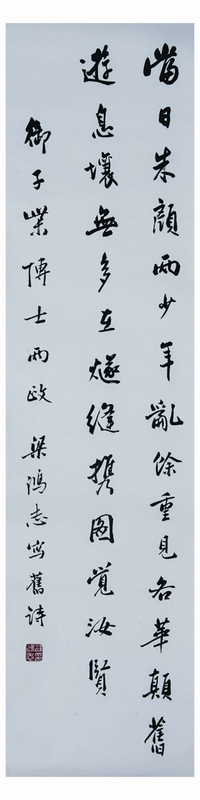 當日朱顏兩少年亂餘重見各華顛舊
遊息壤無多縫携覺汝賢
御子業博士兩政 梁鴻志寫舊詩